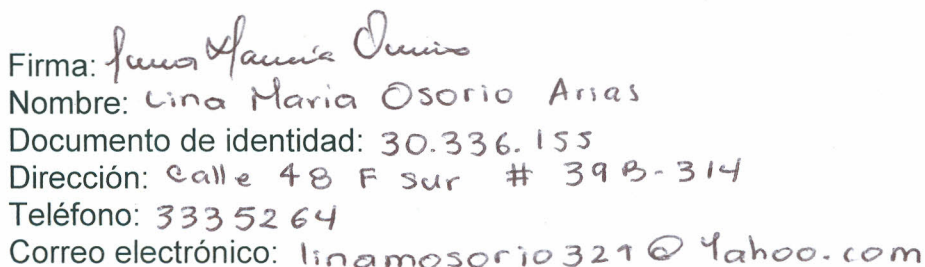 Firma:
Nombre: Lina Maria Osorio Arias
Documento de identidad: 30.336.155
Dirección: Calle 48 F sur # 39B-314
Teléfono: 3335264
Correo electrónico: linamosorio321@Yahoo.com